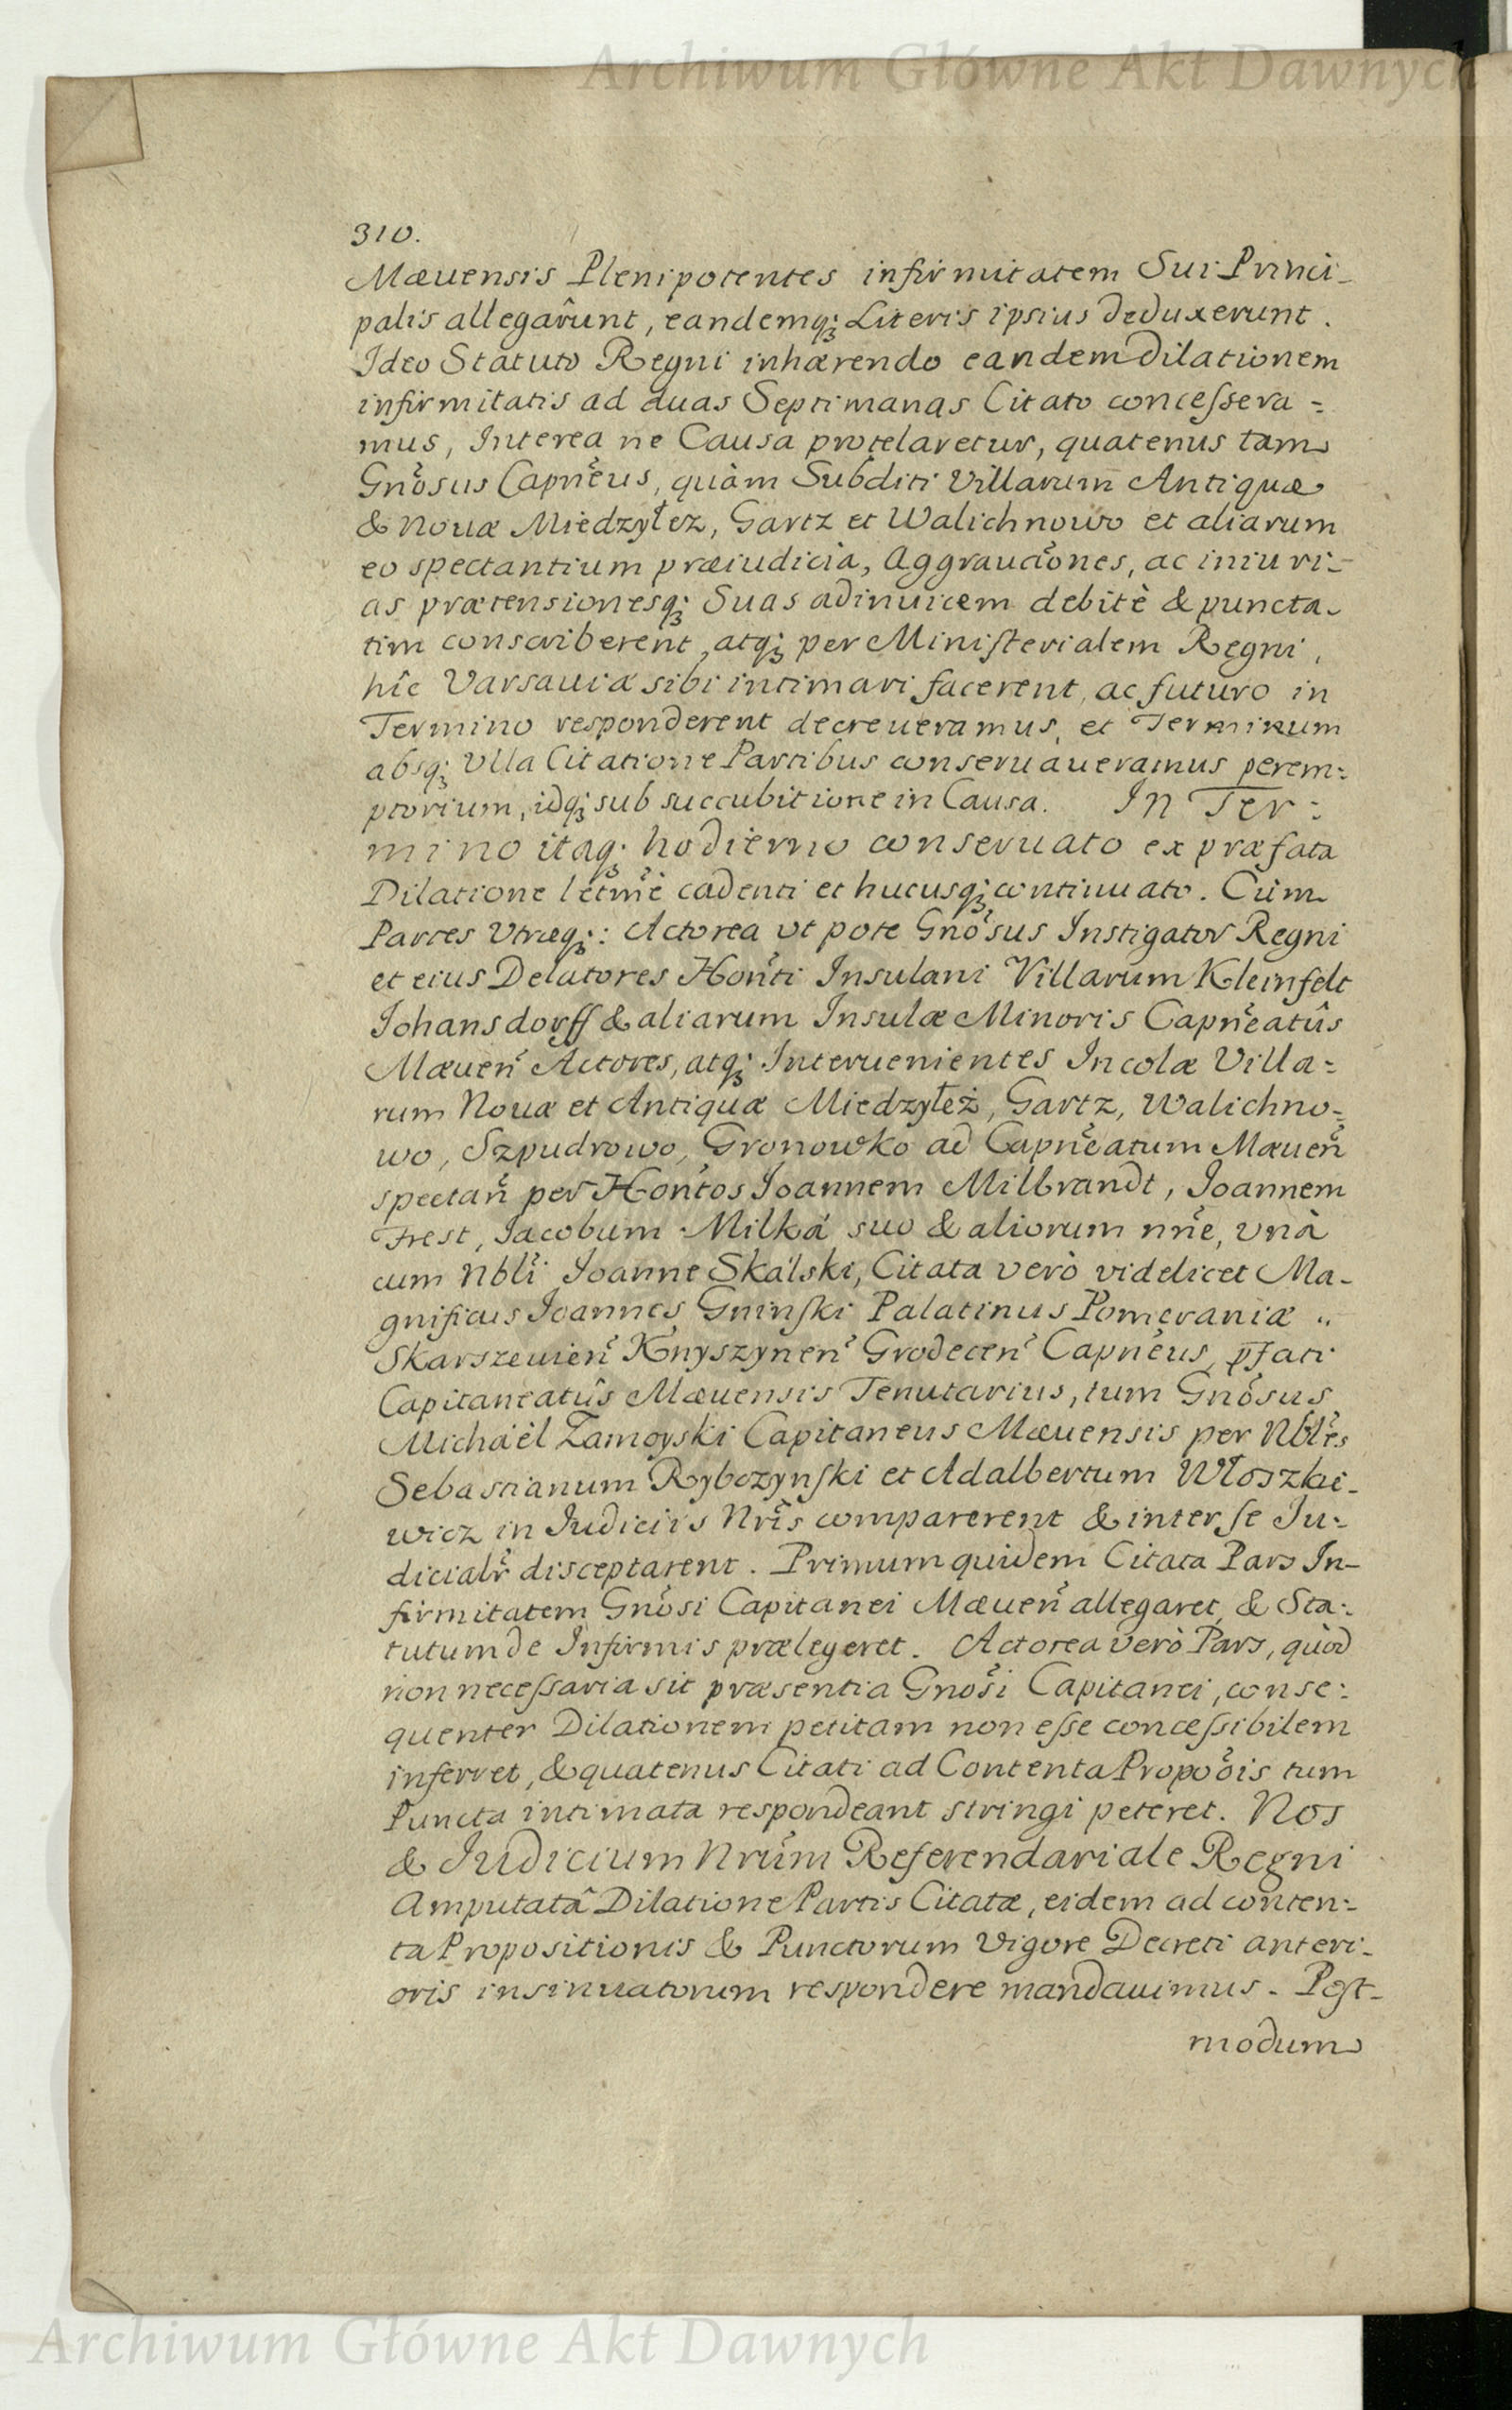 Archiwum Główne Akt Dawnych
310.
Mæuensis Plenipotentes infirmitatem Sui Princi-
palis allegârunt, eandemq; Literis ipsius deduxerunt.
Ideo Statuto Regni inhærendo eandem Dilationem
infirmitatis ad duas Septimanas Citato concessera=
mus, Interea ne Causa protelaretur, quatenus tam
Gnosus Capneus, quàm Subditi Villarum Antiquæ
& Nouæ Miedzyłez, Gartz et Walichnowo et aliarum
eo spectantium præiudicia, Aggrauaones, ac iniuri-
as prætensionesq; Suas adinuicem debitè & puncta-
tim conscriberent, atq; per Ministerialem Regni,
hîc Varsauiæ sibi intimari facerent, ac futuro in
Termino responderent decreueramus, et Terminum
absq; Vlla Citatione Partibus conseruaueramus perem=
ptorium, idq; sub succubitione in Causa. In Ter=
mino itaq; hodierno conseruato ex præfata
Dilatione letmè cadenti et hucusq; continuato. Cùm
Partes Vtræq;: Actorea vt pote Gnosus Instigator Regni
et eius Delatores Honti Insulani Villarum Kleinfelt
Johansdorff & aliarum Insulæ Minoris Capneatûs
Mæuen Actores, atq; Interuenientes Incolæ Villa=
rum Nouæ et Antiquæ Miedzyłeż, Gartz, Walichno=
wo, Szpudrowo, Gronowko ad Capneatum Mæuen
spectan per Hontos Joannem Milbrandt, Joannem
Frest, Jacobum Milka suo & aliorum nne, vnà
cum Nbli Joanne Skalski, Citata verò videlicet Ma-
gnificus Joannes Gninski Palatinus Pomeraniæ
Skarszeuien Knyszynen Grodecen Capneus, pfati
Capitaneatûs Mæuensis Tenutarius, tum Gnosus
Michaël Zamoyski Capitaneus Mæuensis per Nbles
Sebastianum Rybczynski et Adalbertum Włoszkie-
wicz in Judiciis Nris comparerent & inter se Ju=
dicialr disceptarent. Primum quidem Citata Pars In-
firmitatem Gnosi Capitanei Mæuen allegaret, & Sta=
tutum de Infirmis prælegeret. Actorea verò Pars, quòd
non necessaria sit præsentia Gnosi Capitanei, conse=
quenter Dilationem petitam non esse concessibilem
inferret, & quatenus Citati ad Contenta Propoois tum
Puncta intimata respondeant stringi peteret. Nos
& Judicium Nrum Referendariale Regni
Amputatâ Dilatione Partis Citatæ, eidem ad conten=
ta Propositionis & Punctorum Vigore Decreti anteri-
oris insinuatorum respondere mandauimus. Post-
modum
Archiwum Główne Akt Dawnych